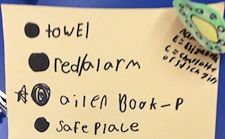 towel
red/alarm
ailen Book-P
safe place